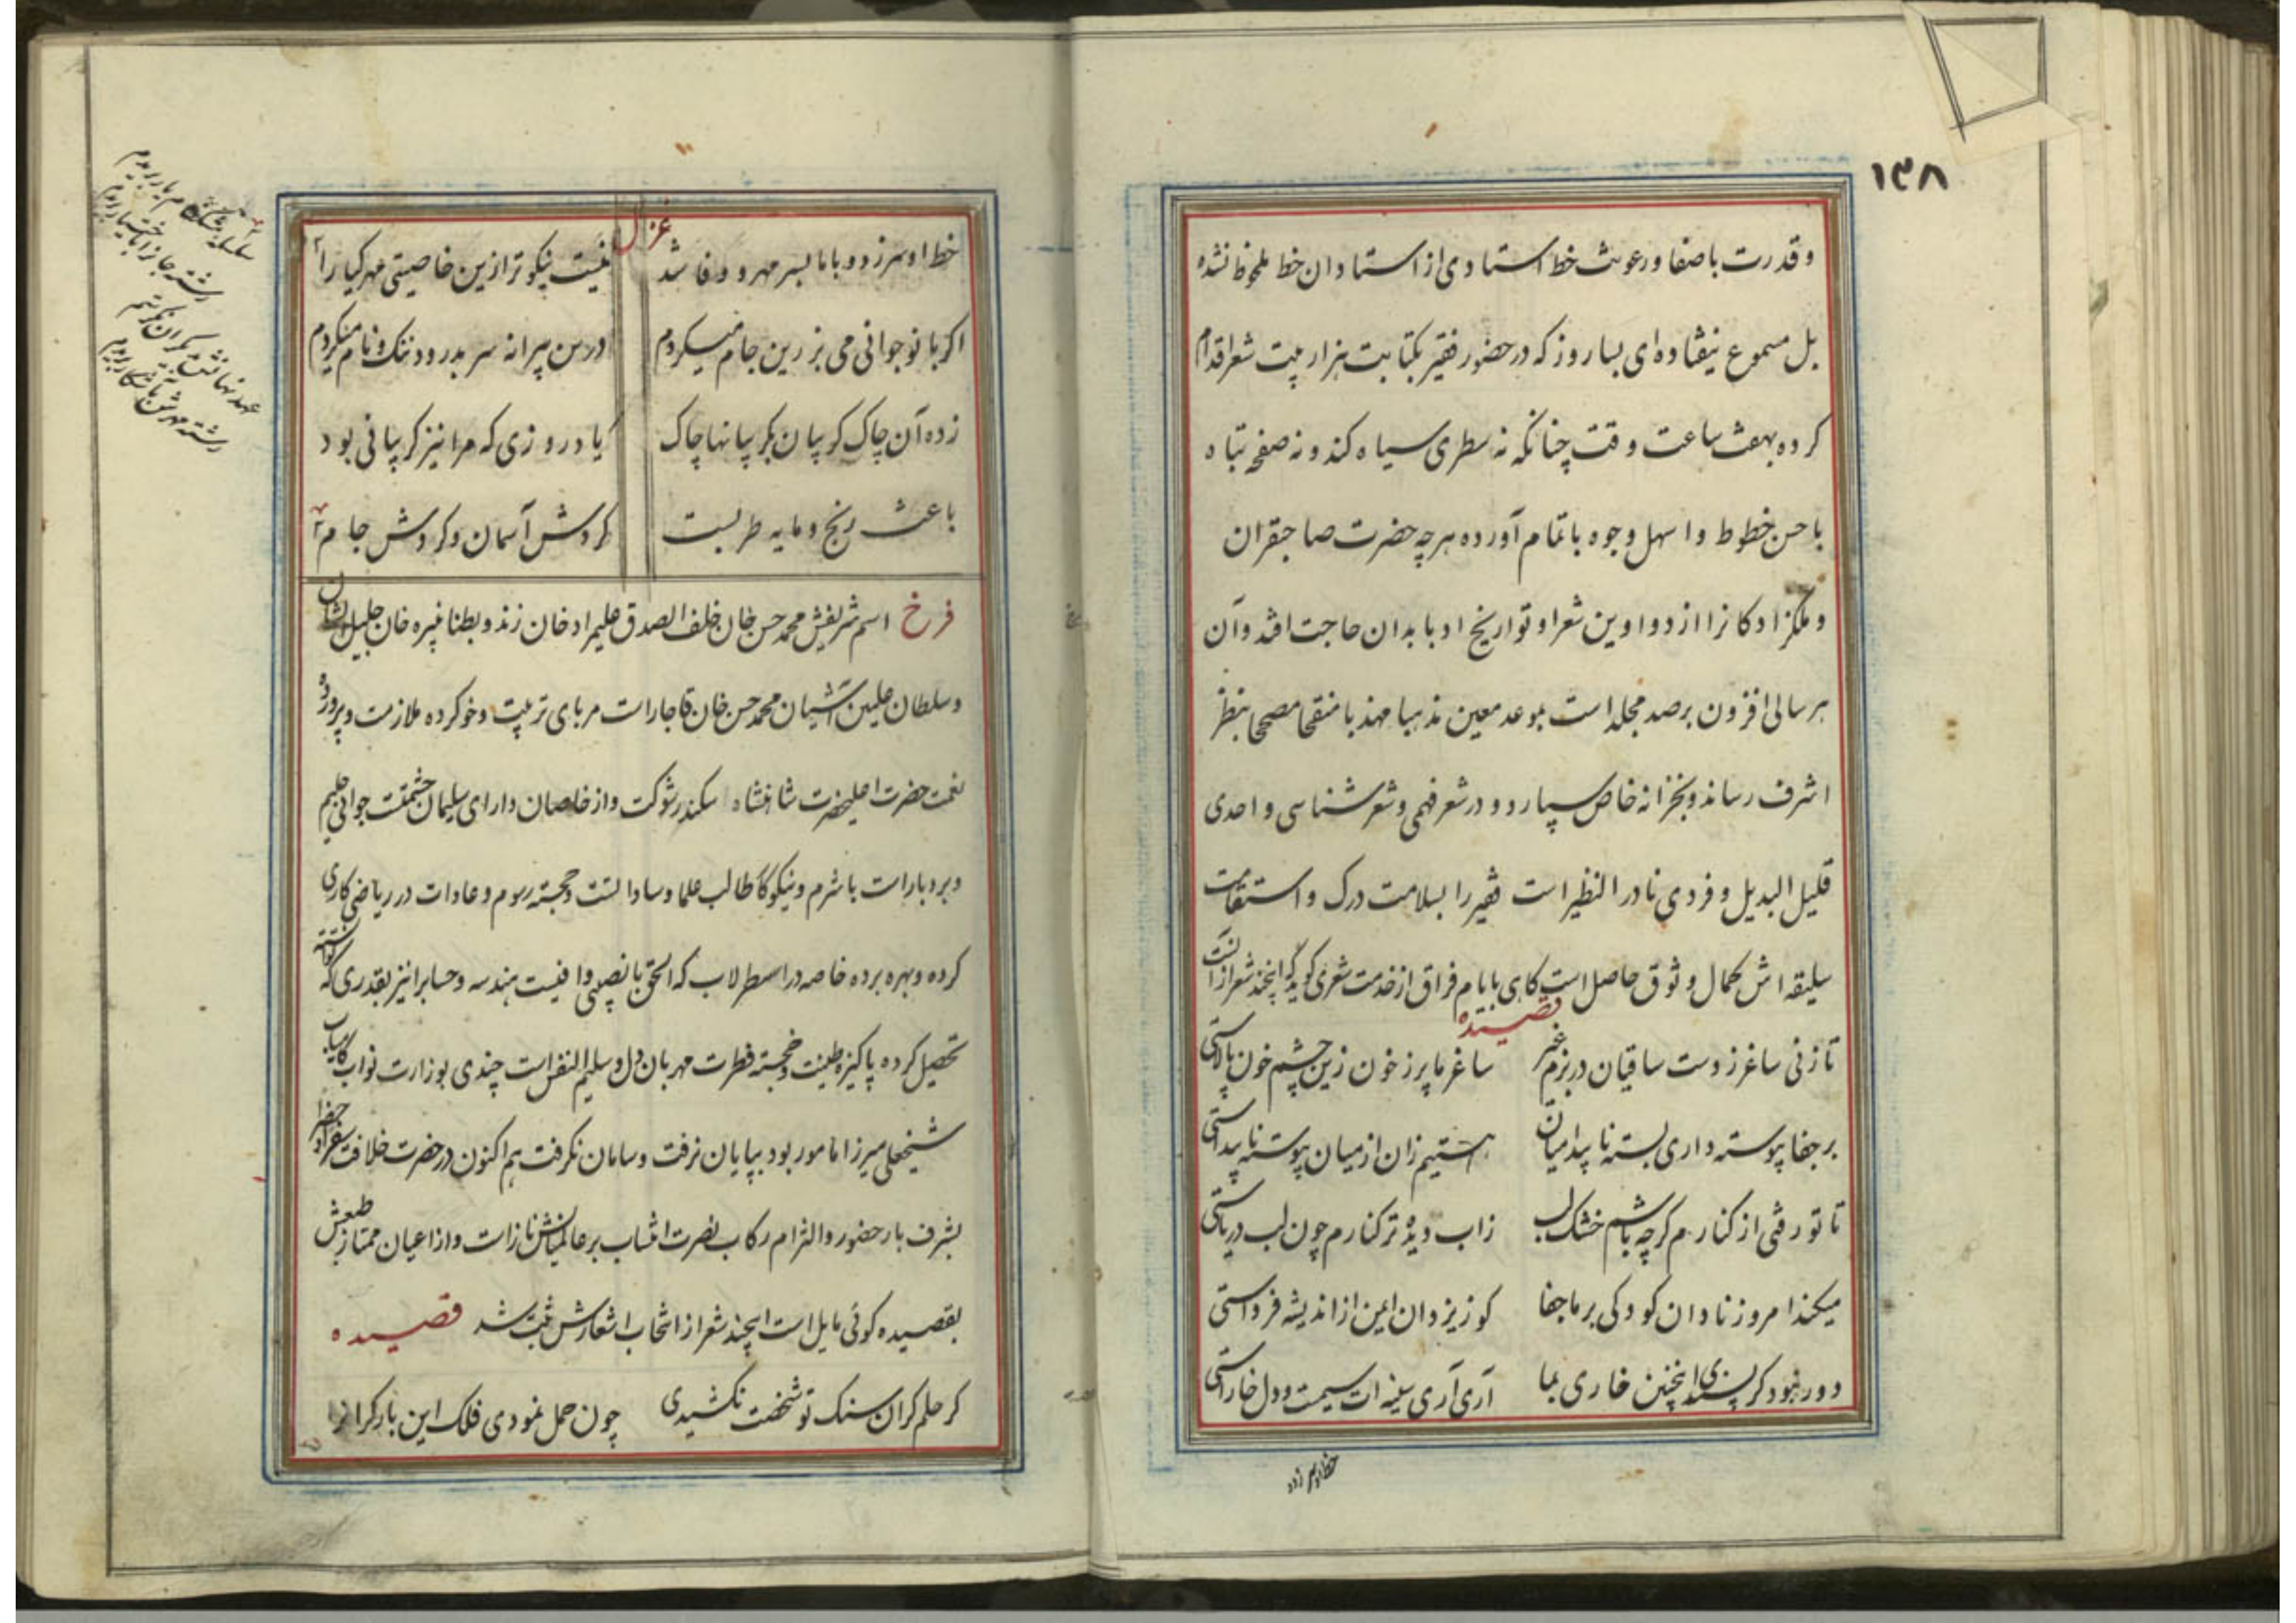 ۱۳۸
و قدرت با صفا و رعونت خط استادی از استادان خط ملحوظ نشده
بل مسموع نیفتاده ای بسا روز که در حضور فقیر بکتابت هزار بیت شعر اقدام
کرده بهفت ساعت وقت چنانکه نه سطری سیاه کند و نه صفحه تباه
باحسن خطوط و اسهل وجوه باتمام آورده هرچه حضرت صاحبقران
و ملکزادکانرا از دواوین شعرا و تواریخ ادبا بدان حاجت افتد و آن
هر سالی افزون بر صد مجلد است بموعد معین مذهبا مهذبا منقحا مصححا بنظر
اشرف رساند و بخزانه خاص سپارد و در شعر فهمی و شعر شناسی واحدی
قلیل البدیل و فردی نادر النظیر است فقیر را بسلامت درک و استقامت
سلیقه اش کمال وثوق حاصل است کاهی بایام فراق از خدمت شعری کوید که اینچند شعر از انست
قصیده
تا زنی ساغر ز دست ساقیان در بزم غیر ساغر ما پر ز خون زین چشم خون پالاستی
بر جفا پیوسته داری بسته ناپیدا میان هستیم زان از میان پیوسته ناپیداستی
تا تو رفتی از کنارم کرچه باشم خشک لب زاب دیده تر کنارم چون لب دریاستی
میکند امروز نادان کودکی بر ما جفا کو ز یزدان ایمن از اندیشه فرداستی
دور نبود کر پسندی اینچنین خاری بما آری آری سینه ات سیمست و دل خاراستی
خط او سر زد
غزل
خط او سر زد و با ما بسر مهر و وفا شد نیست نیکوتر ازین خاصیتی مهر کیا را
اکر با نوجوانی می بزرین جام میکردم درین پیرانه سر بدرود ننک و نام میکردم
زده آن چاک کریبان بکریبانها چاک یاد روزی که مرا نیز کریبانی بود
باعث رنج و مایه طربست کردش آسمان و کردش جام
فرخ اسم شریفش محمد حسن خان خلف الصدق علیمراد خان زند و بطنا نبیره خان جلیل الشان
و سلطان علیین آشیان محمد حسن خان قاجار است مربای تربیت و خو کرده ملازمت و پرورده
نعمت حضرت اعلیحضرت شاهنشاه اسکندر شوکت و از خاصان دارای سلیمان حشمتست جوانی حلیم
و بردبار است با شرم و نیکوکار طالب علما و ساداتست و خجسته رسوم و عادات در ریاضی کاری
کرده و بهره برده خاصه در اسطرلاب که الحق با نصیبی وافیست هندسه و حسابرا نیز بقدری که توانسته
تحصیل کرده پاکیزه طینت و خجسته فطرت مهربان دل و سلیم النفس است چندی بوزارت نواب کامیاب
شیخعلی میرزا مامور بود بپایان نرفت و سامان نکرفت هم اکنون در حضرت خلافت سفرا و حضرا
بشرف بار حضور و التزام رکاب نصرت انتساب بر عالمیانش ناز است و از اعیان ممتاز طبعش
بقصیده کوئی مایل است اینچند شعر از انتخاب اشعارش ثبت شد قصیده
کر حلم کران سنک تو شخصت نکشیدی چون حمل نمودی فلک این بار کرانرا